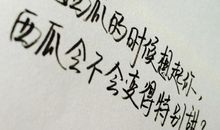 西瓜的时候想起你,
西瓜会不会变得特别甜?